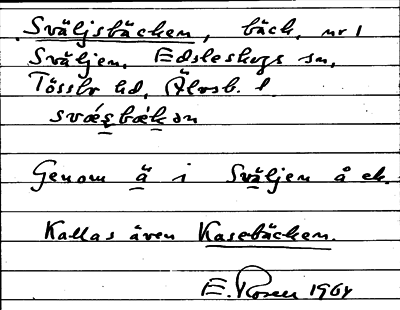 Sväljsbäcken, bäck, nr 1
Sväljen, Edsleskogs sn,
Tössbo hd, Älvsb. l.
svæ̀s̨bæ̀kən
Genom ä i Sväljen å ek.
Kallas även Kasebäcken.
E. Rosen 1964